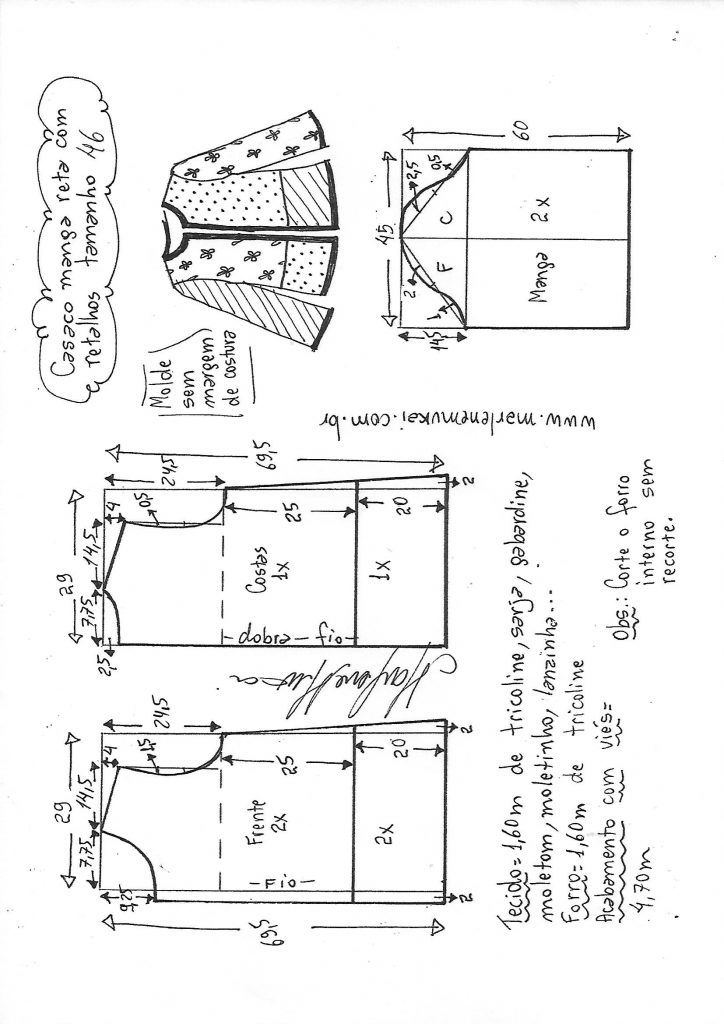 Casaco manga reta com
retalhos tamanho 46
Molde
sem
margem
de costura
45
60
14,5
2
1
2,5
0,5
F
C
Manga
2x
www.marlenemukai.com.br
29
7,75
14,5
4
24,5
69,5
2,5
0,5
Costas
1x
25
dobra
fio
1x
20
2
29
7,75
14,5
4
24,5
69,5
9,25
1,5
Frente
2x
25
FIO
2x
20
2
2
Tecido=1,60m de tricoline, sarja, gabardine,
moletom, moletinho, lanzinha...
Forro=1,60m de tricoline
Acabamento com viés=
4,70m
Obs.: Corte o forro
interno sem
recorte.